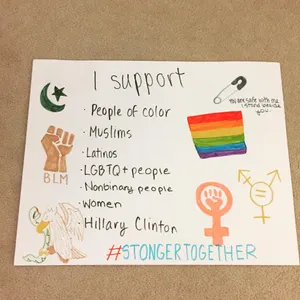 I support
You are safe with me
I stand beside
you.
· People of color
· Muslims
· Latinos
· LGBTQ+ people
· Nonbinary people
· Women
· Hillary Clinton
BLM
#STONGERTOGETHER